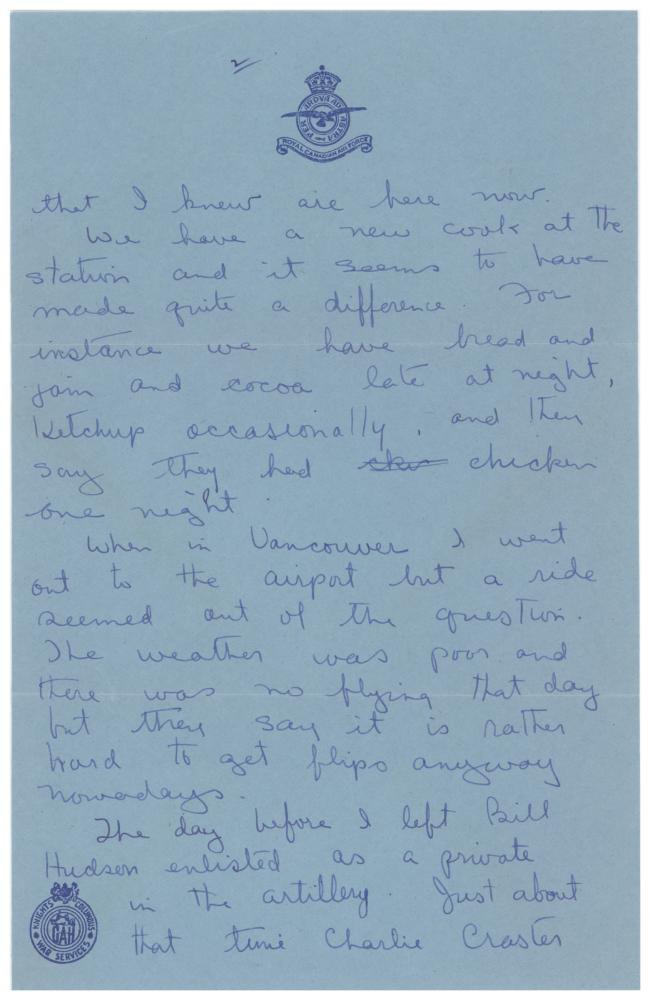 2
PER ARDVA AD ASTRA
ROYAL CANADIAN AIR FORCE
that I knew are here now.
We have a new cook at the
station and it seems to have
made quite a difference. For
instance we have bread and
jam and cocoa late at night,
ketchup occasionally, and they
say they had chicken
one night.
When in Vancouver I went
out to the airport but a ride
seemed out of the question.
The weather was poor and
there was no flying that day
but they say it is rather
hard to get flips anyway
nowadays.
The day before I left Bill
Hudson enlisted as a private
in the artillery. Just about
that time Charlie Craster
KNIGHTS OF COLUMBUS
CAH
WAR SERVICES